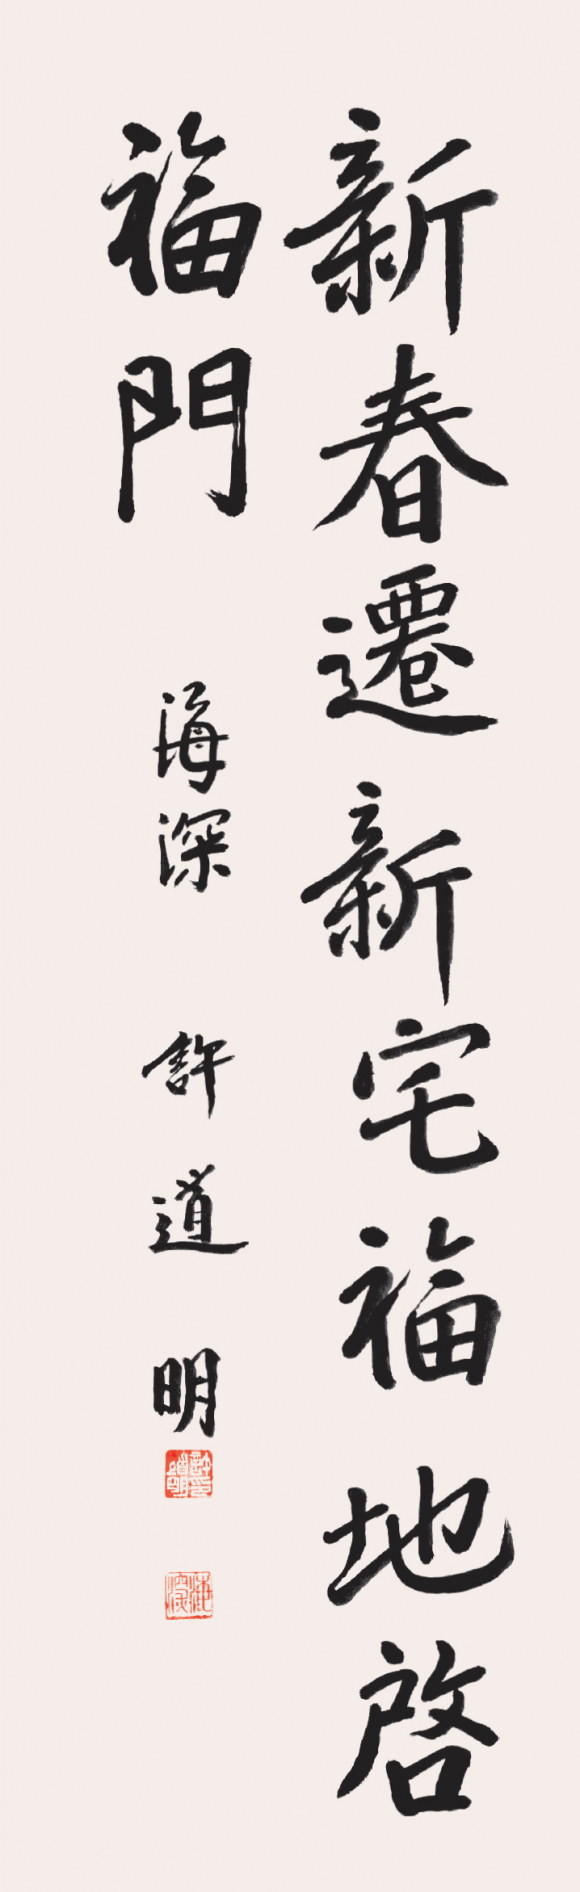 新春遷新宅福地啓
福門
海深 許道明